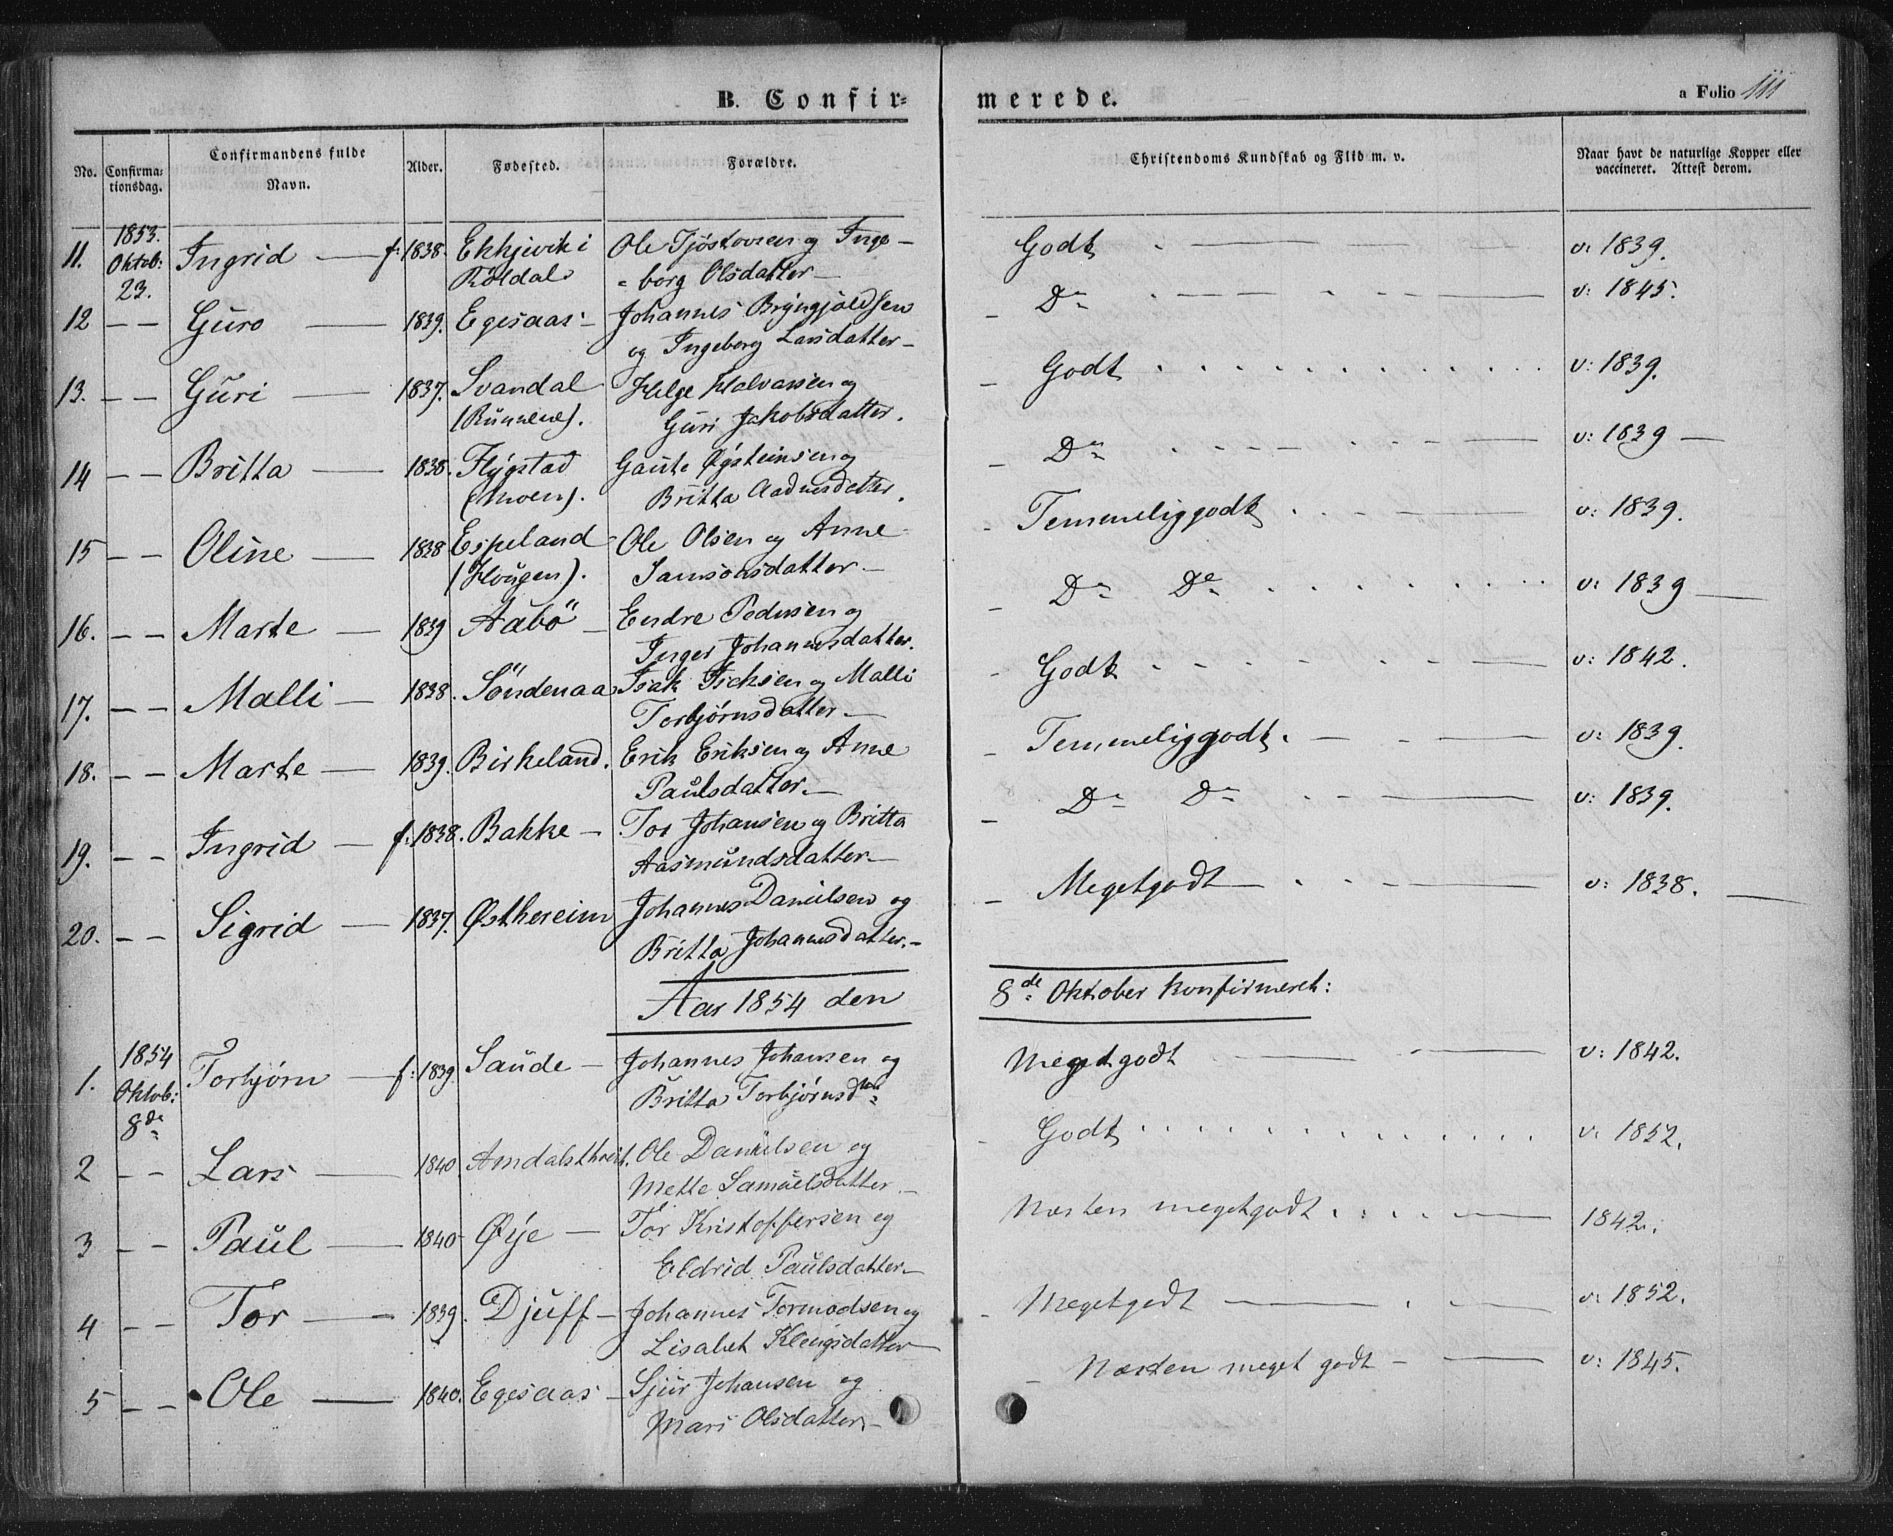 B. Confir=
merede.
a Folio 111
No.
Confirma=
tionsdag.
Confirmandens fulde
Navn.
Alder.
Fødested.
Forældre.
Christendoms Kundskab og Flid m. v.
Naar havt de naturlige Kopper eller
vaccineret. Attest derom.
11. 1853. Oktob: 23. Ingrid — f: 1838. Ekkjevik i Ole Tjöstovsen og Inge- Godt v: 1839.
Röldal = borg Olsdatter —
12 — — Guro — 1839. Egesaas — Johannes Bryngjoldsen Do v: 1845.
og Ingeborg Larsdatter —
13. — — Guri — 1837. Svandal Helge Halvorsen og Godt v: 1839.
(Runnene). Guri Jakobsdatter.
14 — — Britta — 1838. Flÿgstad Gaute Øÿsteinsen og Do v: 1839 —
(Moen). Britta Aadnesdatter.
15 — — Oline — 1838 Espeland Ole Olsen og Anne Temmeliggodt v: 1839.
(Hougen). Samsonsdatter —
16. — — Marte — 1839 Aabö — Endre Pedersen og Do Do v: 1839 —
Inger Johannesdatter.
17. — — Malli — 1838. Söndenaa Isak Isaksen og Malli Godt v: 1842.
Torbjörnsdatter —
18. — — Marte — 1839. Birkeland. Erik Eriksen og Anne Temmeliggodt. v: 1839.
Paulsdatter. —
19. — — Ingrid — f: 1838. Bakke — Tor Johansen og Britta Do Do v: 1839.
Aasmundsdatter —
20. — — Sigrid — 1837. Østhereim Johannes Danielsen og Megetgodt v: 1838.
Britta Johannesdatter. —
Aar 1854 den 8de Oktober konfirmeret:
1. 1854 Oktob: 8de Torbjørn — f: 1839 Saude — Johannes Johansen og Megetgodt v: 1842.
Britta Torbjørnsdtr
2 — — Lars — 1840 Amdalsthveit. Ole Danielsen og Godt v: 1852.
Mette Samuelsdatter —
3 — — Paul — 1840 Øÿe — Tor Kristoffersen og Næsten megetgodt 1842.
Eldrid Paulsdatter —
4 — — Tor — 1839. Djuff — Johannes Tormodsen og Megetgodt v: 1852.
Lisabet Klengsdatter
5 — — Ole — 1840. Egesaas — Sjur Johansen og Næsten meget godt — v: 1845.
Mari Olsdatter. —